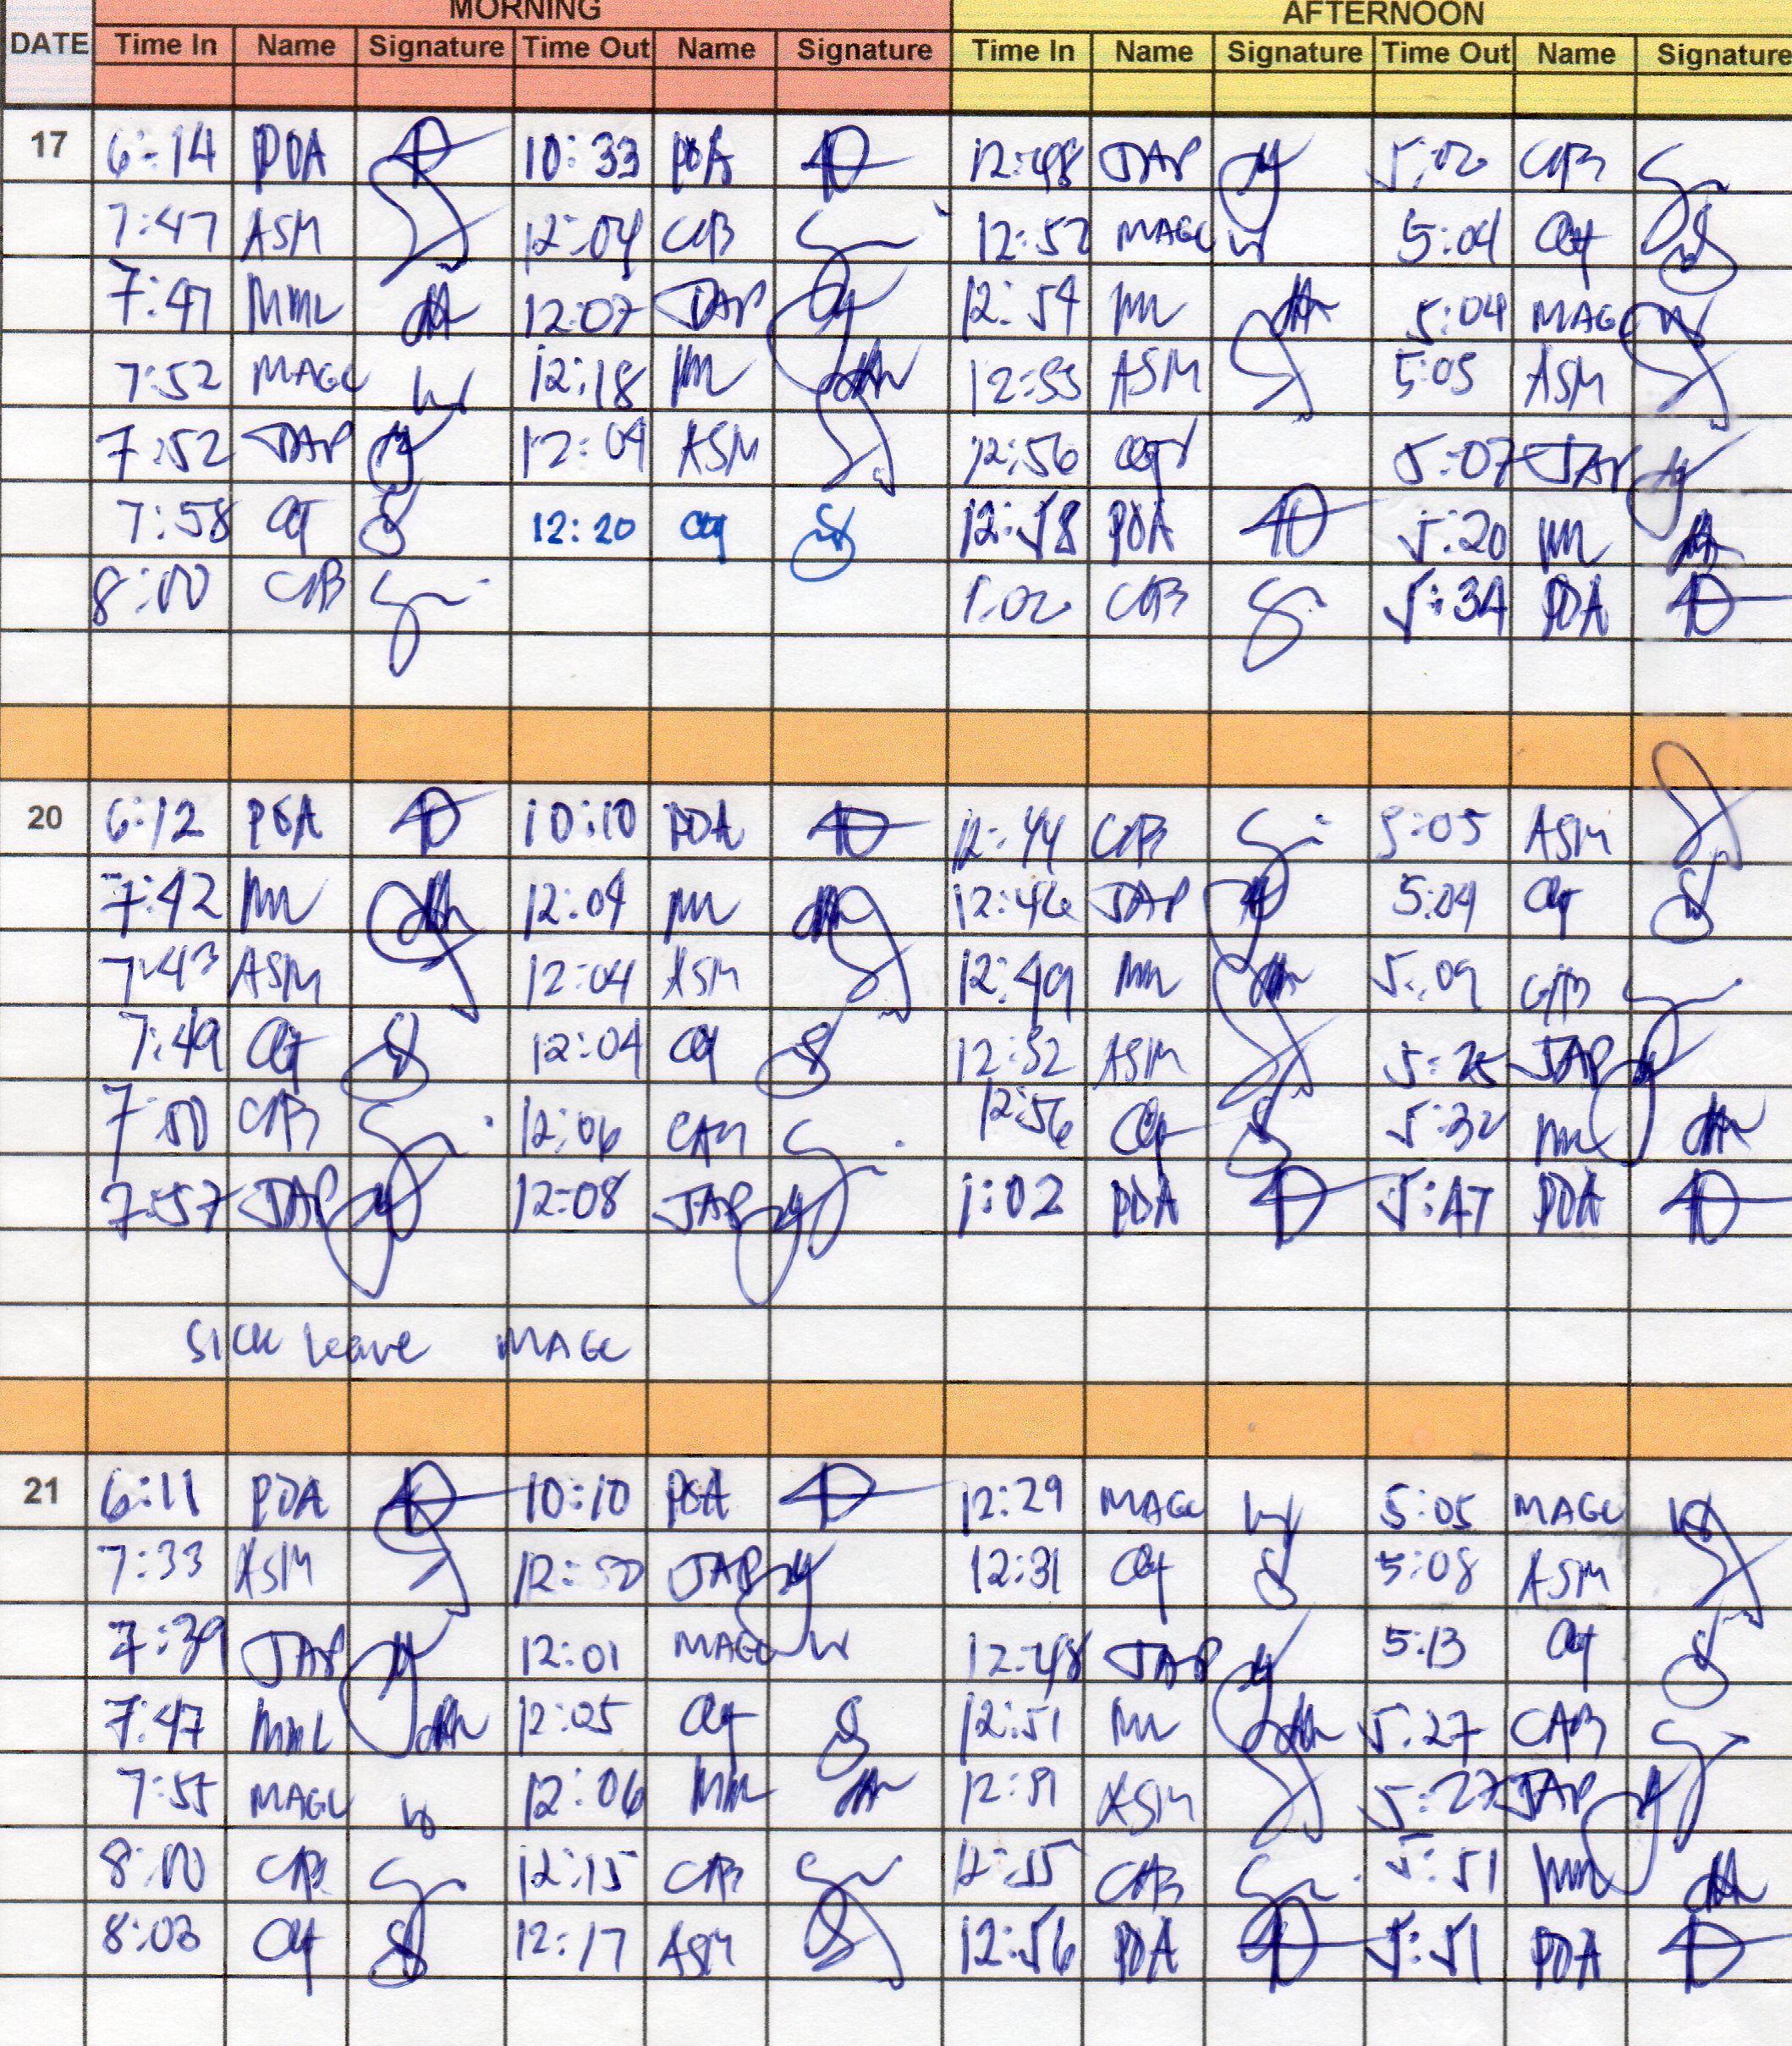 MORNING AFTERNOON
DATE Time In Name Signature Time Out Name Signature Time In Name Signature Time Out Name Signature
17 6:14 PDA 10:33 PDA 12:48 JAP 5:02 CAB
7:47 ASM 12:04 CAB 12:52 MAGC 5:04
7:47 MML 12:07 JAP 12:54 5:04 MAGC
7:52 MAGC 12:18 12:55 ASM 5:05 ASM
7:52 JAP 12:09 ASM 12:56 5:07 JAP
7:58 12:20 12:58 PDA 5:20
8:00 CAB 1:02 CAB 5:34 PDA
20 6:12 PDA 10:10 PDA 12:44 CAB 5:05 ASM
7:42 12:04 12:46 JAP 5:04
7:43 ASM 12:04 ASM 12:49 5:09 CAB
7:49 12:04 12:52 ASM 5:25 JAP
7:50 CAB 12:06 12:56 5:32
7:57 JAP 12:08 JAP 1:02 PDA 5:47 PDA
SICK leave MAGC
21 6:11 PDA 10:10 PDA 12:29 MAGC 5:05 MAGC
7:33 ASM JAP 12:31 5:08 ASM
7:39 JAP 12:01 MAGC 12:48 JAP 5:13
7:47 MML 12:05 12:51 5:27 CAB
7:55 MAGC 12:06 12:51 ASM 5:27 JAP
8:00 CAB 12:15 CAB 12:55 CAB 5:51
8:03 12:17 ASM 12:56 PDA 5:51 PDA